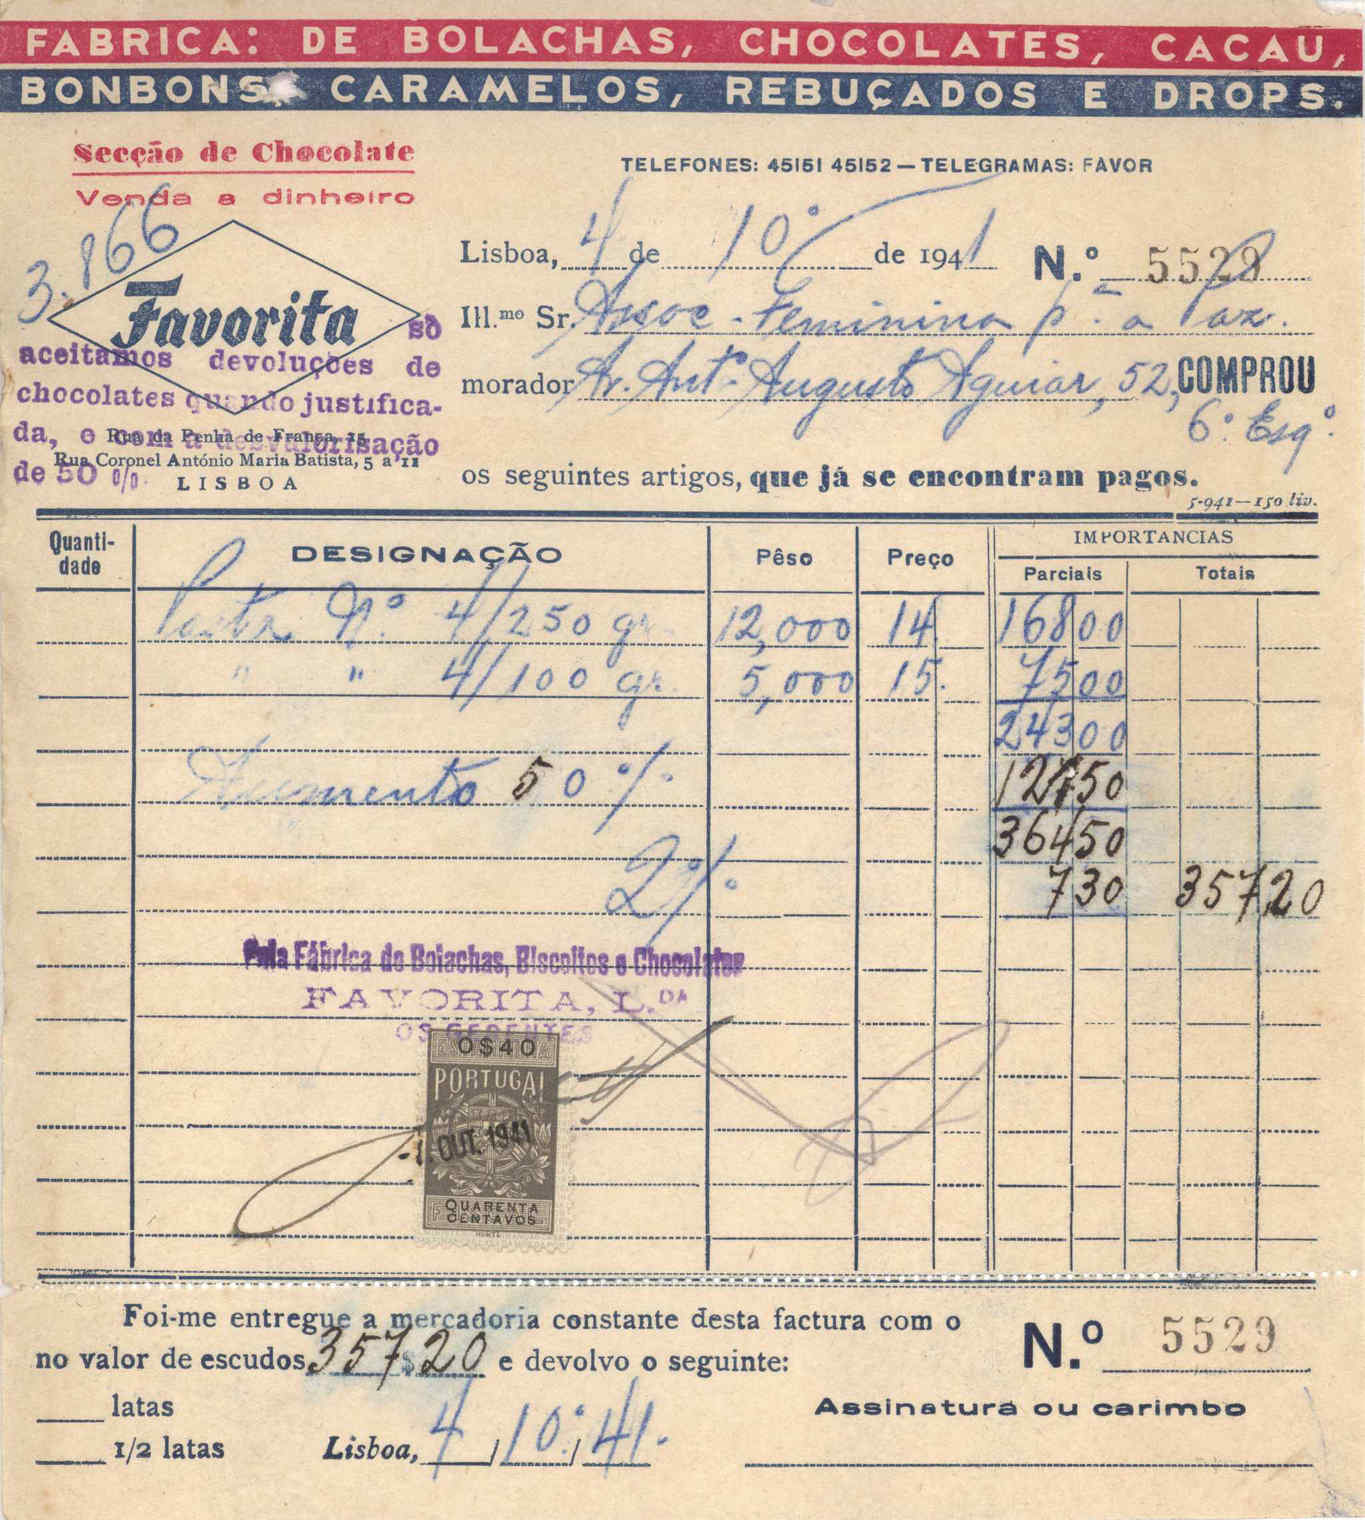 FABRICA: DE BOLACHAS, CHOCOLATES, CACAU,
BONBONS, CARAMELOS, REBUÇADOS E DROPS.
Secção de Chocolate
Venda a dinheiro
TELEFONES: 45151 45152 — TELEGRAMAS: FAVOR
3.866
Lisboa, 4 de 10º de 1941 N.º 5529
Favorita
Ill.mo Sr. Assoc. Feminina p.ª a Paz.
só
aceitamos devoluções de
chocolates quando justifica-
da, e com a desvalorisação
de 50 %
morador Av. Antº Augusto Aguiar, 52, COMPROU
6º Esqº.
Rua da Penha de França, 15
Rua Coronel António Maria Batista, 5 a 11
LISBOA
os seguintes artigos, que já se encontram pagos.
5-941—150 liv.
Quanti-
dade DESIGNAÇÃO Pêso Preço IMPORTANCIAS
Parciais Totais
Nº 4/250 gr. 12,000 14 168 00
" " 4/100 gr. 5,000 15. 75 00
243 00
Aumento 50 % 50
364 50
2% 7 30 357 20
Pela Fábrica de Bolachas, Biscoitos e Chocolates
FAVORITA, L.DA
OS GERENTES
0$40
PORTUGAL
OUT. 1941
QUARENTA
CENTAVOS
Foi-me entregue a mercadoria constante desta factura com o N.º 5529
no valor de escudos 357$20 e devolvo o seguinte:
latas
Assinatura ou carimbo
1/2 latas Lisboa, 4 / 10º / 41.